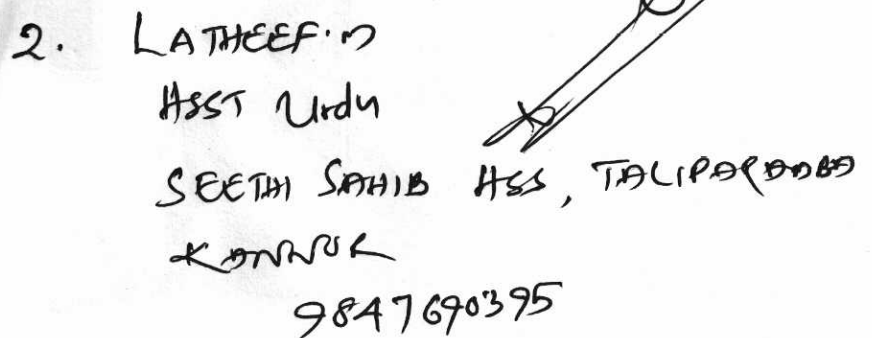 2. LATHEEF.M
HSST Urdu
SEETHI SAHIB HSS, TALIPARAMBA
KANNUR
9847690395